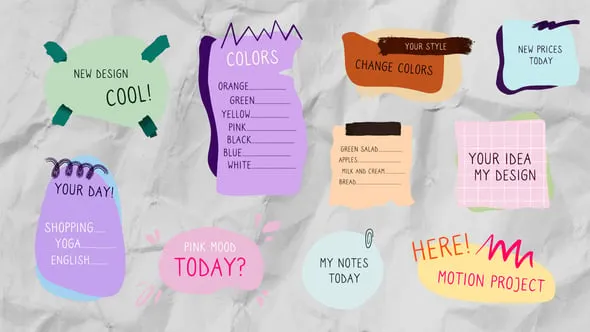 NEW DESIGN
COOL!
COLORS
ORANGE
GREEN
YELLOW
PINK
BLACK
BLUE
WHITE
YOUR STYLE
CHANGE COLORS
NEW PRICES
TODAY
GREEN SALAD
APPLES
MILK AND CREAM
BREAD
YOUR IDEA
MY DESIGN
YOUR DAY!
SHOPPING
YOGA
ENGLISH
PINK MOOD
TODAY?
MY NOTES
TODAY
HERE!
MOTION PROJECT